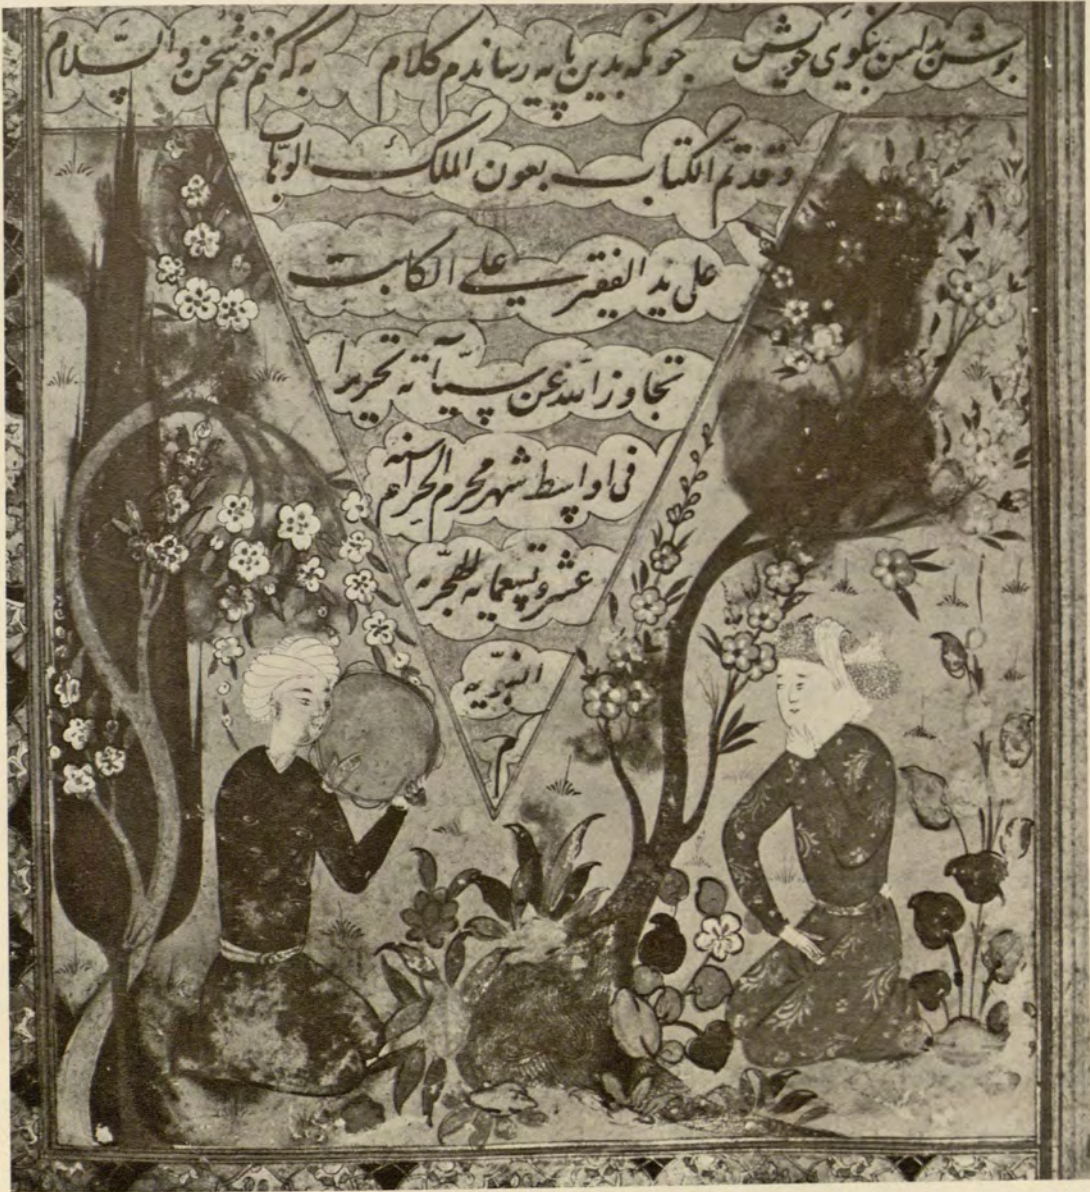 بپوش بدامن نیکوی خویش چونکه بدین پایه رساندم کلام به که کنم ختم سخن والسلام
وقد تم الکتاب بعون الملک الوهاب
علی ید الفقیر علی الکاتب
تجاوز الله عن سیآته تحریرا
فی اواسط شهر محرم الحرام سنه
عشر و تسعمایه للهجریه
النبویه
م